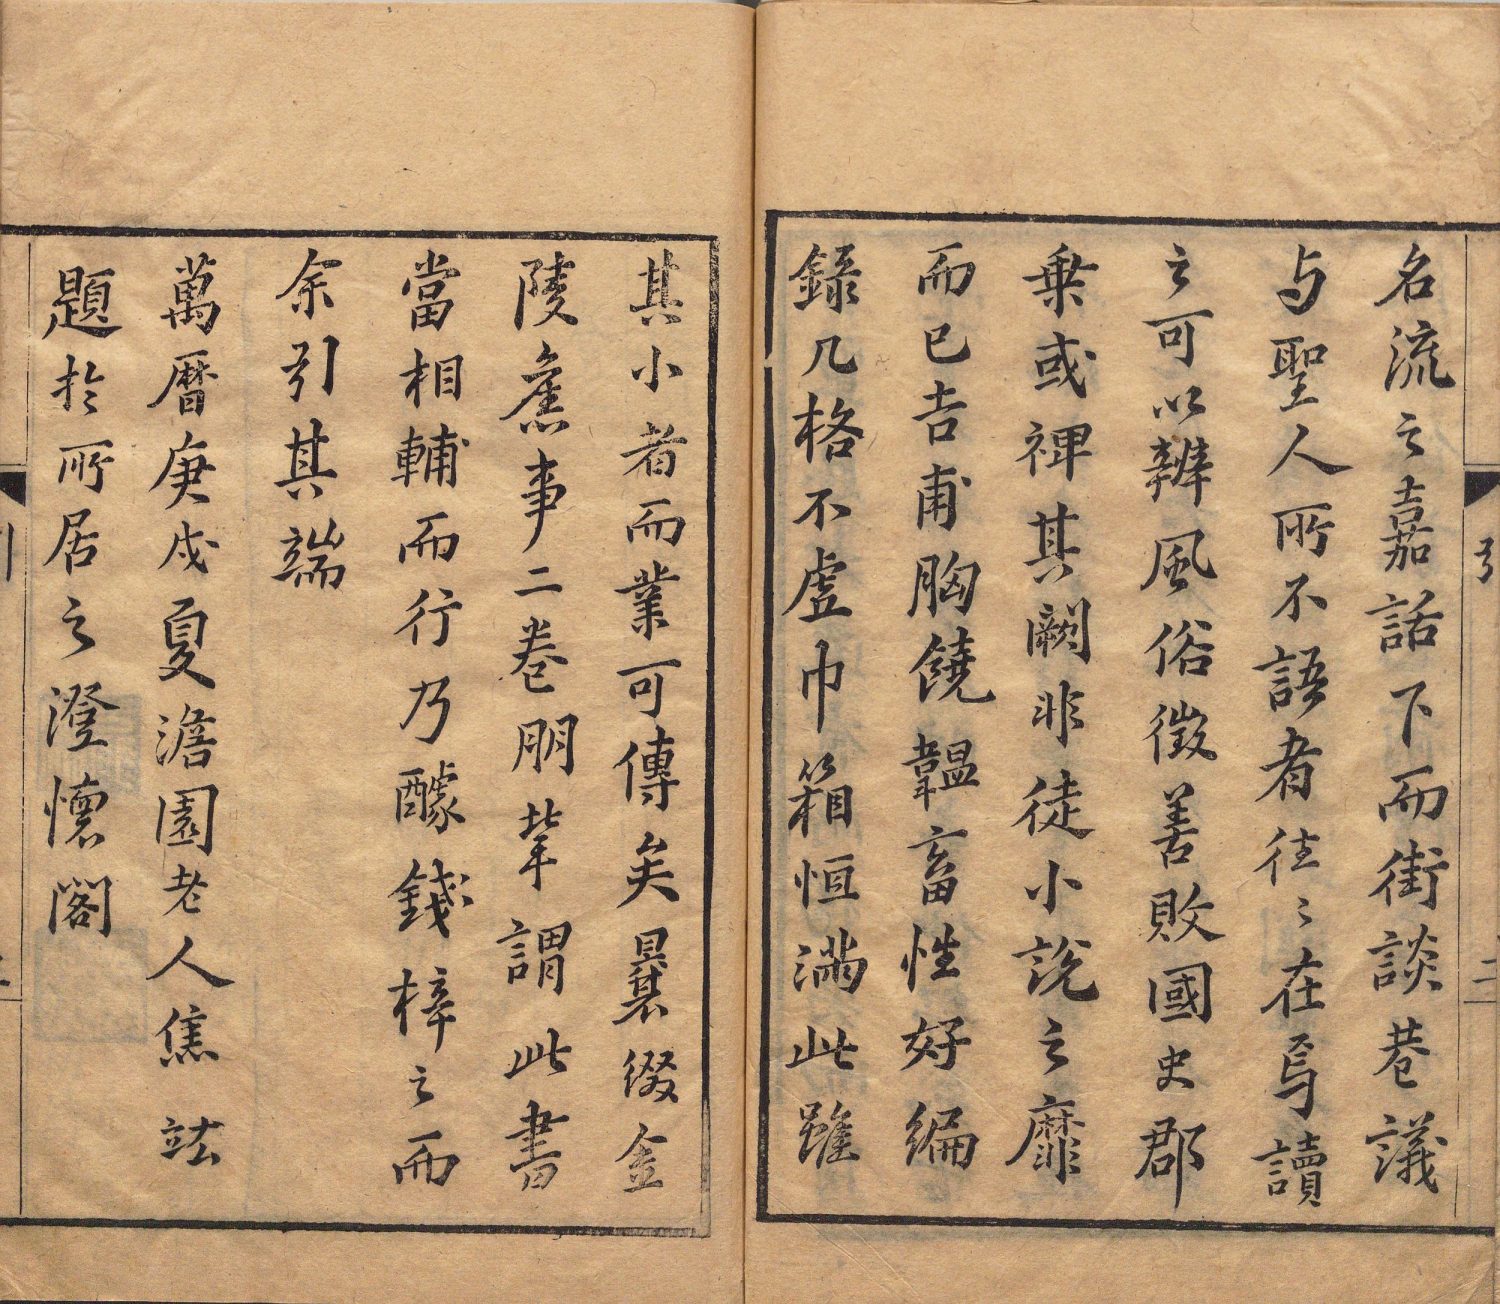 名流之嘉話下而街談巷議
与聖人所不語者往〻在焉讀
之可以辨風俗徵善敗國史郡
乗或裨其闕非徒小說之靡
而已吉甫胸饒韞畜性好編
錄几格不虚巾箱恒滿此雖
其小者而業可傳矣曩綴金
陵舊事二卷朋輩謂此書
當相輔而行乃醵錢梓之而
余引其端
萬曆庚戌夏澹園老人焦竑
題於所居之澄懷閣
引
二
引